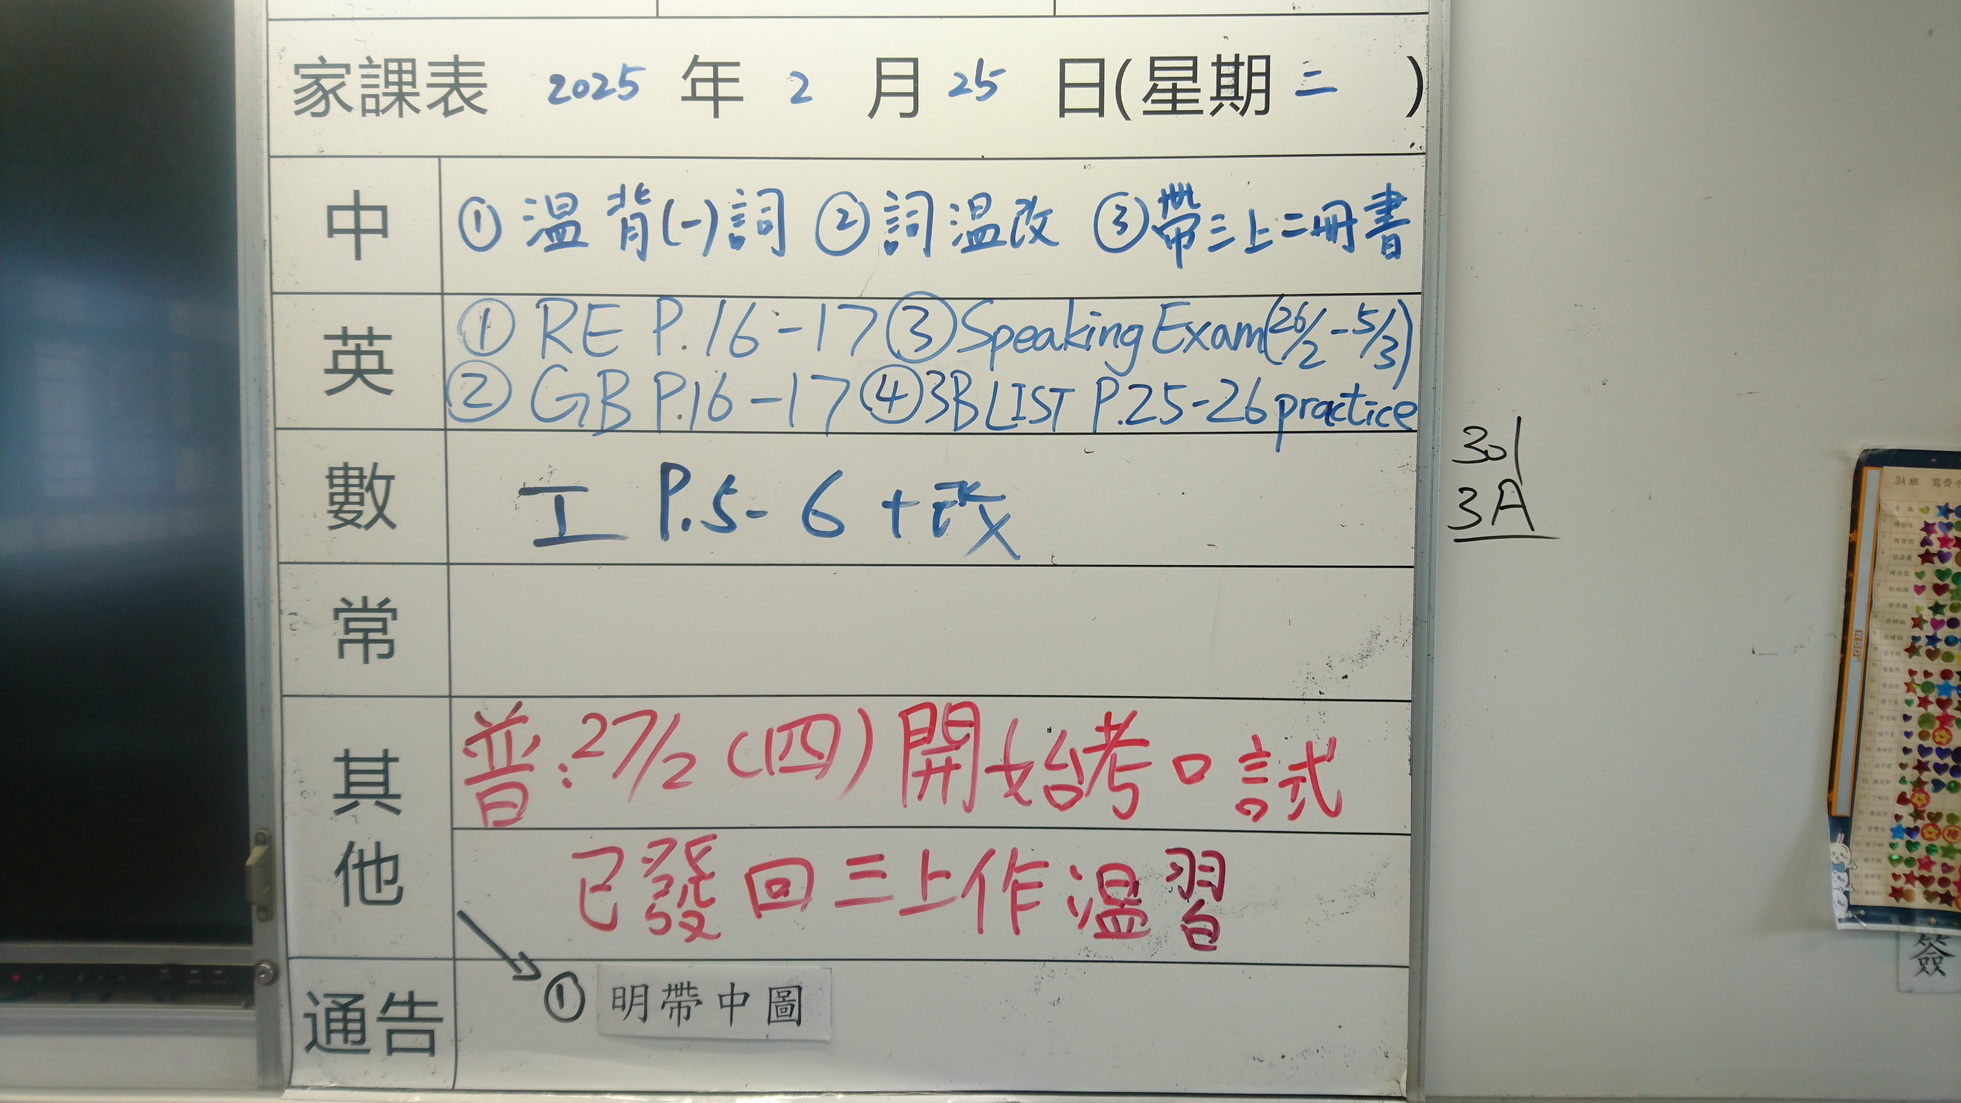 家課表 2025 年 2 月 25 日(星期二)
中 ①温背(一)詞 ②詞温改 ③帶三上二冊書
英 ① RE P.16-17 ③Speaking Exam(26/2-5/3)
② GB P.16-17 ④3B LIST P.25-26 practice
數 工 P.5-6+改
常
其他 普:27/2(四)開始考口試
已發回三上作温習
通告 ① 明帶中圖
301
3A
3A班
簽